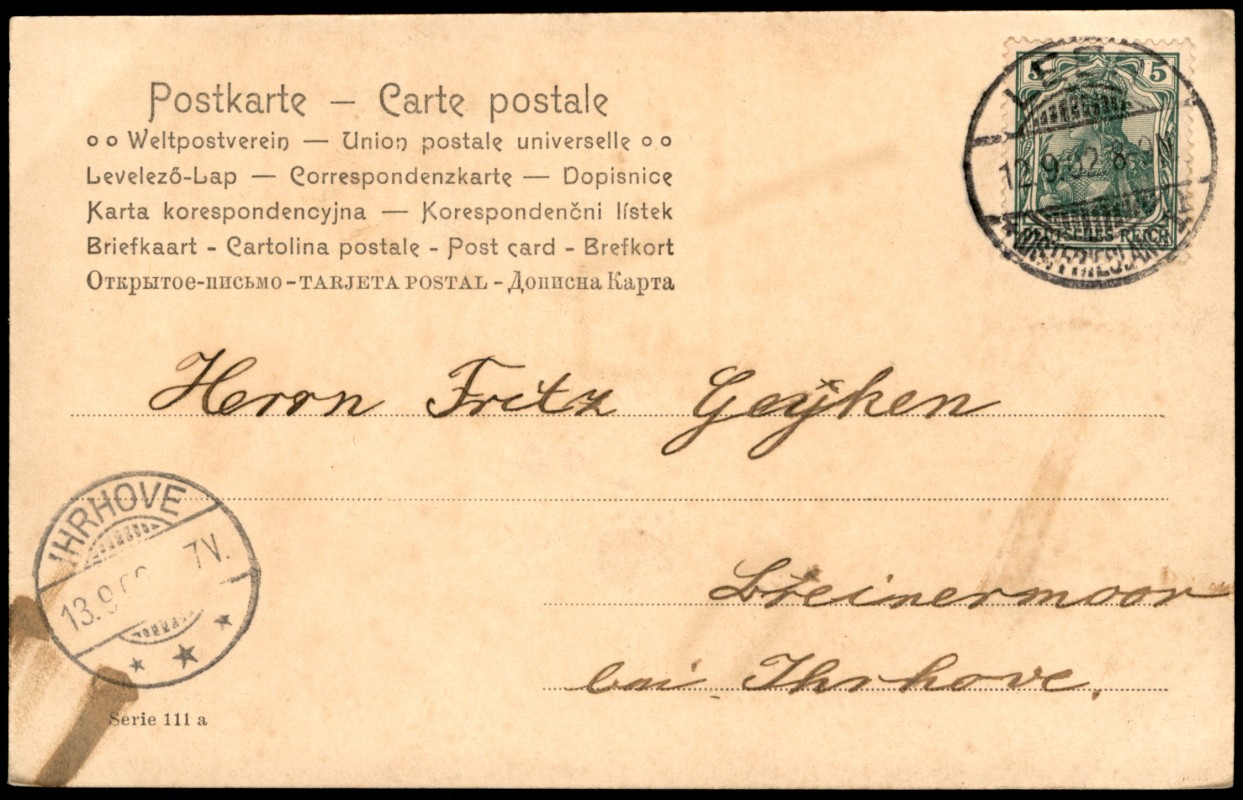 Postkarte — Carte postale
Weltpostverein — Union postale universelle
Levelező-Lap — Correspondenzkarte — Dopisnice
Karta korespondencyjna — Korespondenčni lístek
Briefkaart - Cartolina postale - Post card - Brefkort
Открытое-письмо - TARJETA POSTAL - Дописна Карта
5 5
DEUTSCHES REICH
12.9.02. 8-9 N
(OSTFRIESLAND)
Herrn Fritz Geÿken
IHRHOVE
13.9 7V.
Breinermoor
bei Ihrhove.
Serie 111 a